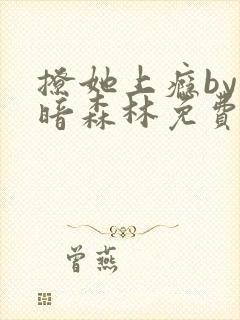 撩她上癮by
暗森林免費
曾燕